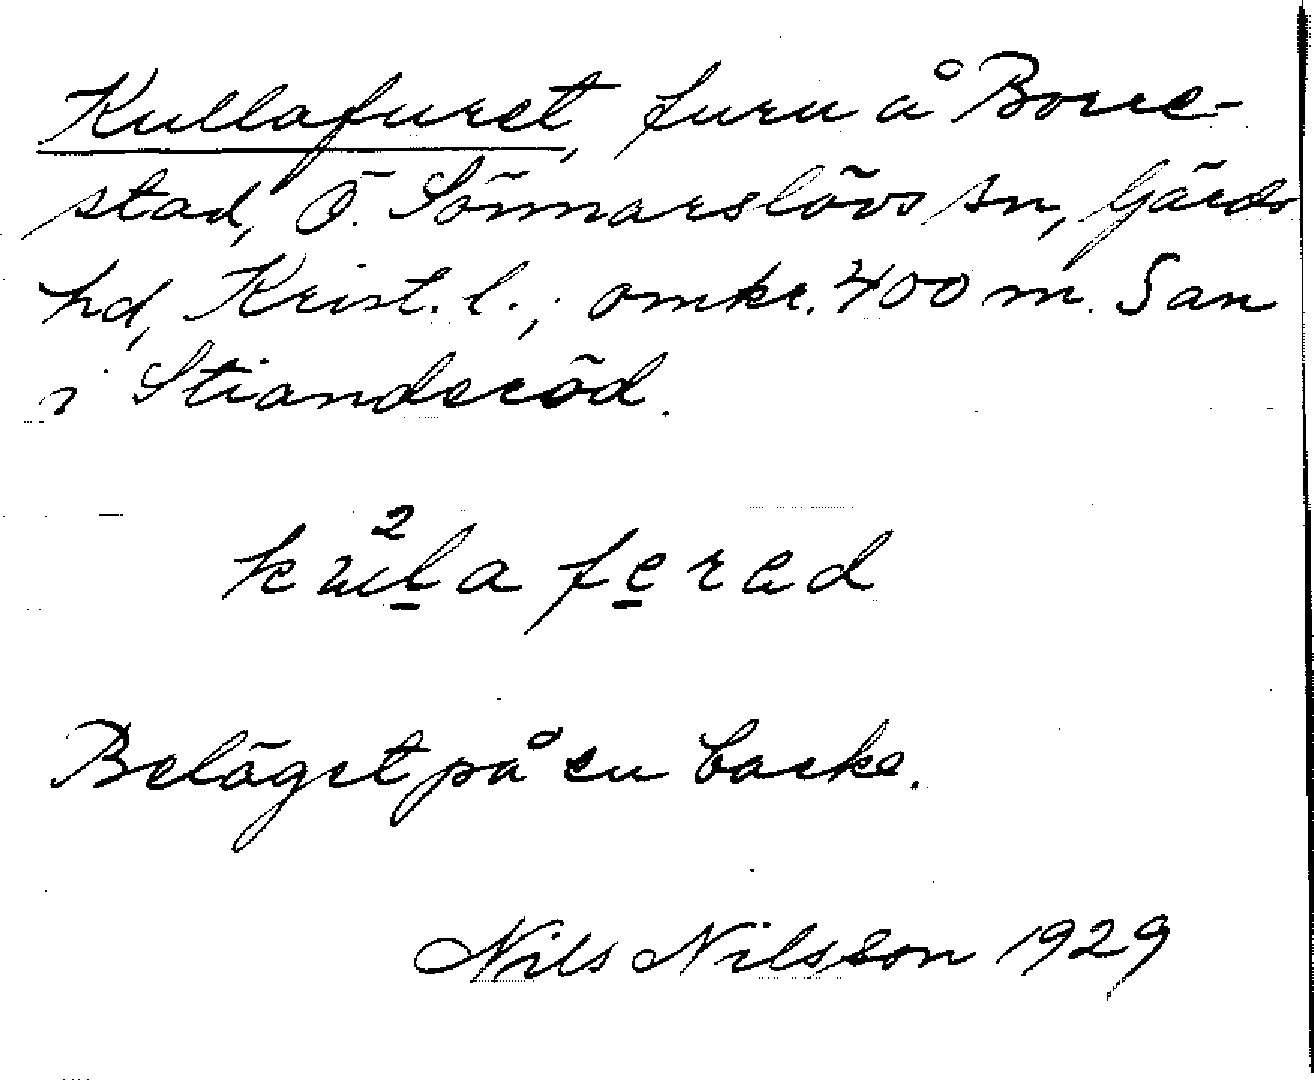 Kullafuret, furu å Borre-
stad, Ö. Sönnarslövs sn, Gärds
hd, Krist. l., omkr. 400 m. S an
i Stianderöd.
2
kula ferad
Beläget på en backe.
Nils Nilsson 1929